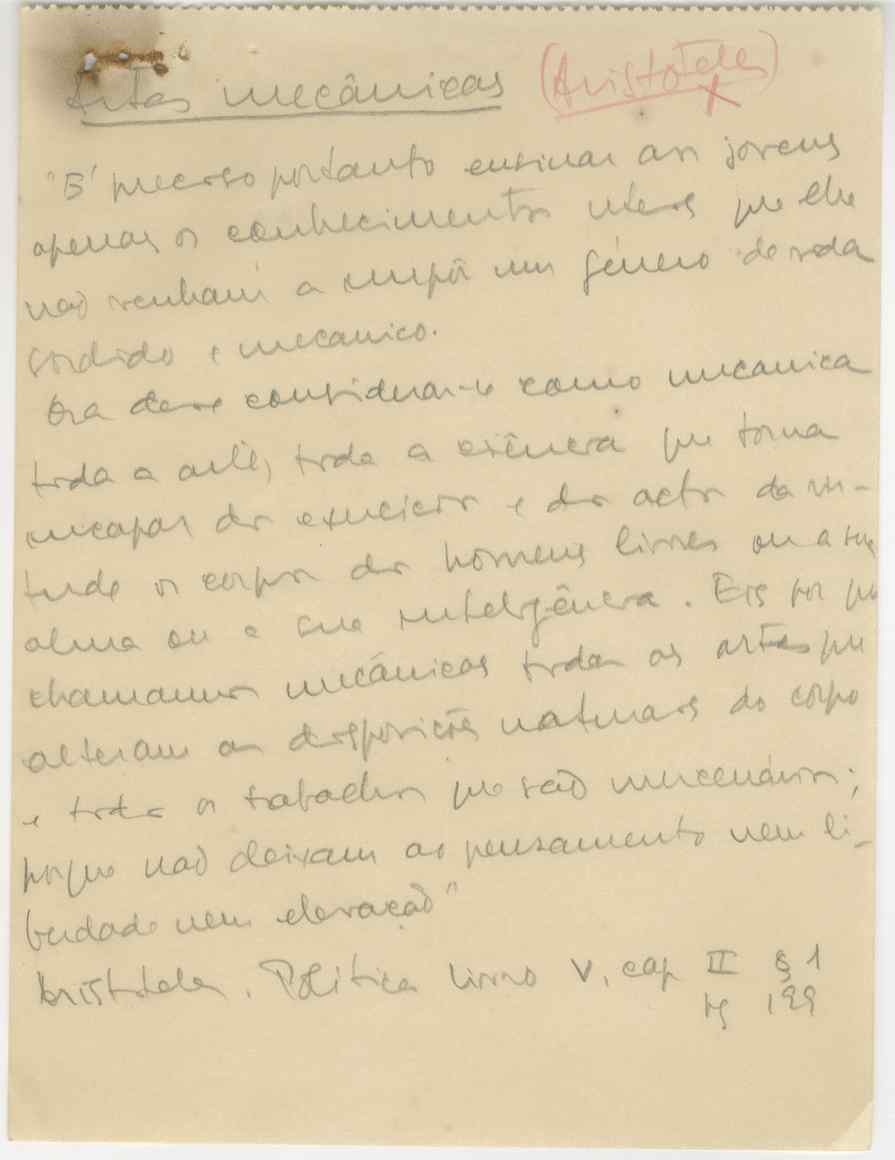 Artes mecânicas (Aristóteles)
"É preciso portanto ensinar aos jovens
apenas os conhecimentos uteis que lhe
não venham a impôr um género de vida
sordido e mecanico.
Ora deve considerar-se como mecanica
toda a arte, toda a ciência que torna
incapaz dos exercicios e dos actos da vir-
tude os corpos dos homens livres ou a sua
alma ou a sua inteligência. Eis por que
chamamos mecánicas todas as artes que
alteram as disposições naturais do corpo
e todos os trabalhos que são mercenários;
porque não deixam ao pensamento nem li-
berdade nem elevação"
Aristoteles. Politica livro V, cap II § 1
pg 199